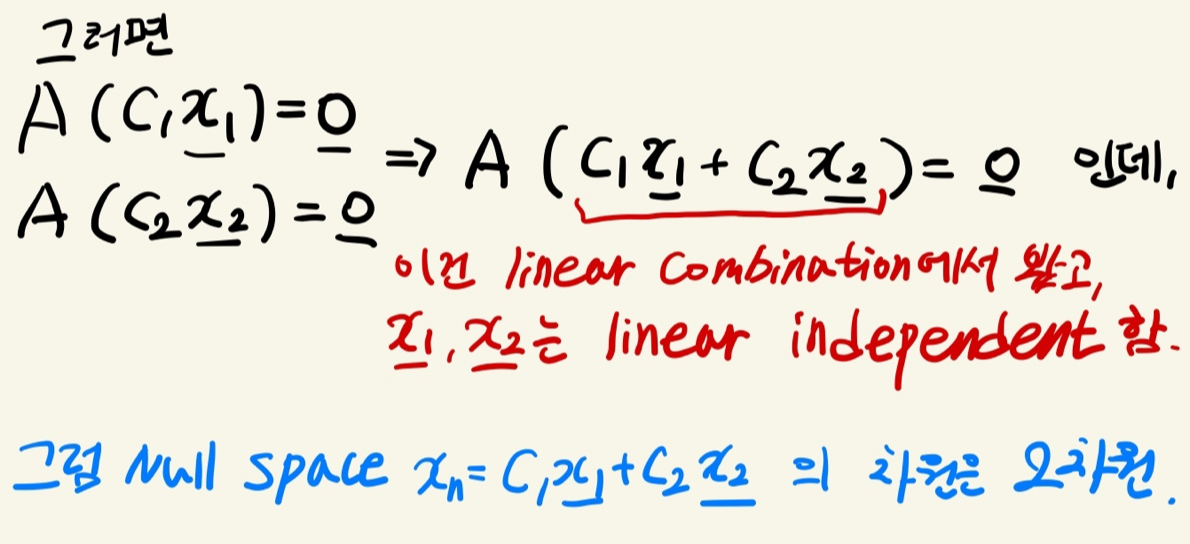 그러면
A(C₁x₁)=0
A(C₂x₂)=0
⇒ A(C₁x₁+C₂x₂)=0 인데,
이건 linear combination에서 왔고,
x₁, x₂는 linear independent 함.
그럼 Null space xₙ=C₁x₁+C₂x₂ 의 차원은 2차원.